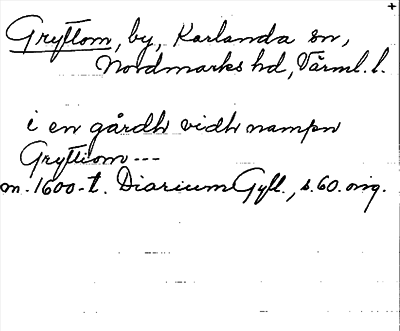 Gryttom, by, Karlanda sn,
Nordmarks hd, Värml. l.
i en gårdh vidh nampn
Gryttiom ---
m. 1600-t. Diarium Gyll., s. 60. orig.